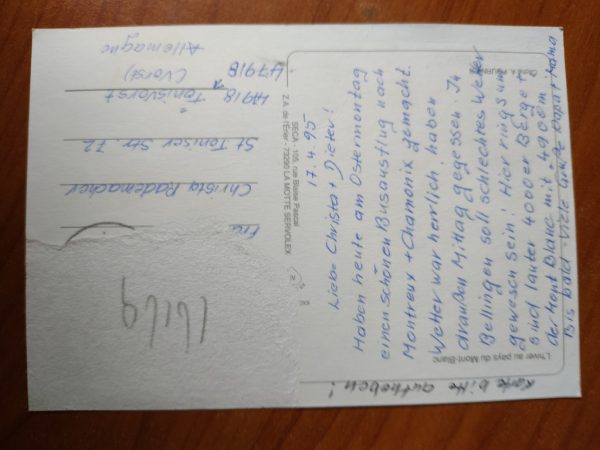 Karte bitte aufheben!
L'hiver au pays du Mont-Blanc
17.4.95
Liebe Christa + Dieter!
Haben heute am Ostermontag
einen schönen Busausflug nach
Montreux + Chamonix gemacht.
Wetter war herrlich, haben
draußen Mittag gegessen. In
Bellingen soll schlechtes Wetter
gewesen sein! Hier ringsum
sind lauter 4000er Berge +
der Mont Blanc mit 4908 m
Bis bald Viele Grüße Papa + Mama
SECA - 105, rue Blaise Pascal
Z.A. de l'Erier - 73290 LA MOTTE SERVOLEX
Frau
Christa Rademacher
St Töniser Str. 72
47918 Tönisvorst 1
(Vorst)
47918
Allemagne